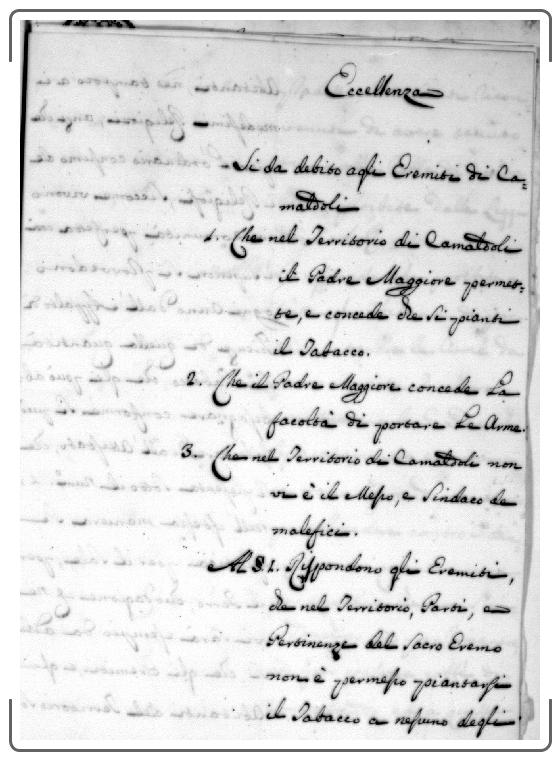 Eccellenza
Si da debito agli Eremiti di Ca=
maldoli
1. Che nel Territorio di Camaldoli
il Padre Maggiore permet=
te, e concede che si pianti
il Tabacco.
2. Che il Padre Maggiore concede La
facoltà di portare Le Arme.
3. Che nel Territorio di Camaldoli non
vi è il Messo, e Sindaco de
malefici.
Al §. 1. Rispondono gli Eremiti,
che nel Territorio, Parti, e
Pertinenze del Sacro Eremo
non è permesso piantarsi
il Tabacco a nessuno degli